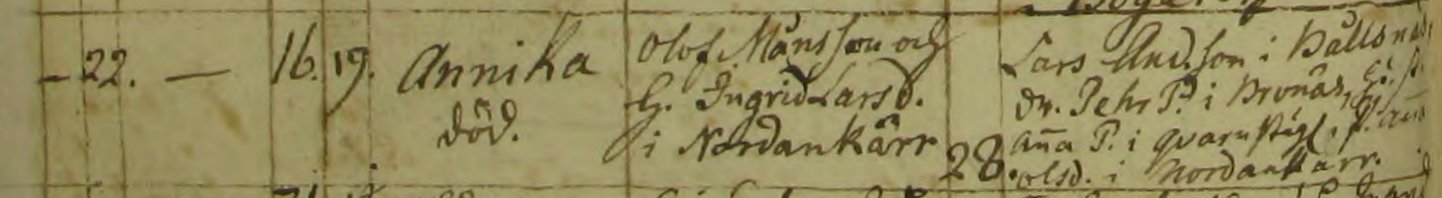 - 22. — 16. 19. Annika
död.
Olof Månsson och
h. Ingrid Larsd.
i Nordankärr
28.
Lars And.son i Bålsnäs,
dr. Pehr P. i Bronäs,
Aña P. i qvarnstigl, p. Añ
olsd. i Nordankärr.